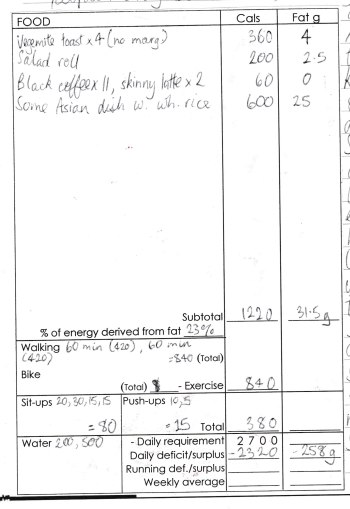 FOOD Cals Fat g
Vegemite toast x 4 (no marg) 360 4
Salad roll 200 2.5
Black coffee x 11, skinny latte x 2 60 0
Some Asian dish w. wh. rice 600 25
Subtotal 1220 31.5 g
% of energy derived from fat 23%
Walking 60 min (420), 60 min
(420) =840 (Total)
Bike
(Total) - Exercise 840
Sit-ups 20, 30, 15, 15 Push-ups 10, 5
= 80 = 15 Total 380
Water 200, 500 - Daily requirement 2700
Daily deficit/surplus -2320 -258g
Running def./surplus
Weekly average